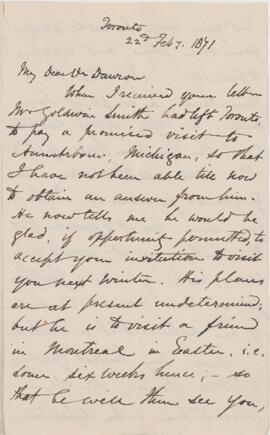 Toronto
22d Feby. 1871
My Dear Dr Dawson
When I received your letter
Mr Goldwin Smith had left Toronto,
to pay a promised visit to
Annarbour, Michigan, so that
I have not been able till now
to obtain an answer from him.
He now tells me he would be
glad, if opportunity permitted, to
accept your invitation to visit
you next Winter. His plans
are at present undetermined;
but he is to visit a friend
in Montreal in Easter, i.e.
some six weeks hence; – so
that he will then see you,